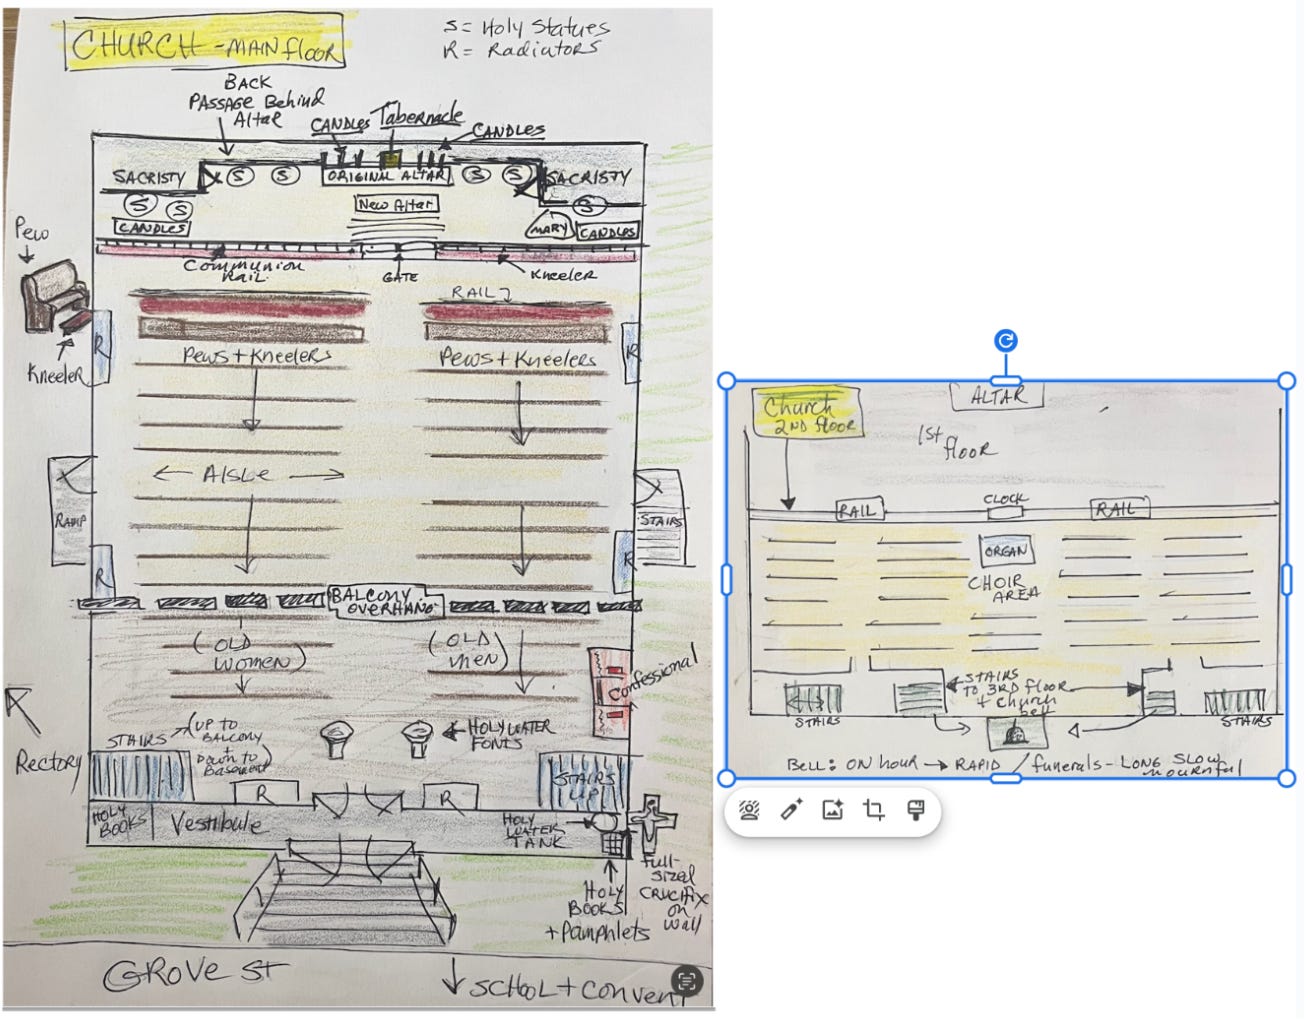 CHURCH - MAIN floor
S = Holy Statues
R = Radiators
BACK
PASSAGE Behind
Altar
CANDLES
Tabernacle
CANDLES
SACRISTY
S
S
ORIGINAL ALTAR
S
S
SACRISTY
S
S
S
New Altar
CANDLES
MARY
CANDLES
Pew
Communion
Rail
GATE
Kneeler
RAIL
R
R
Pews + Kneelers
Pews + Kneelers
Kneeler
AISLE
RAMP
STAIRS
R
R
BALCONY
OVERHANG
(OLD
women)
(OLD
men)
Confessional
STAIRS
(UP TO
BALCONY
+
Down to
Basement)
HOLY WATER
FONTS
Rectory
R
R
STAIRS
UP
HOLY
BOOKS
Vestibule
HOLY
WATER
TANK
HOLY
BOOKS
+ Pamphlets
Full-
sized
CRUCIFIX
on
wall
GROVE ST
SCHOOL + Convent
Church
2ND floor
ALTAR
1st
floor
RAIL
CLOCK
RAIL
ORGAN
CHOIR
AREA
STAIRS
TO 3RD floor
+ church
bell
STAIRS
STAIRS
BELL: ON hour → RAPID / funerals - LONG SLOW
mournful